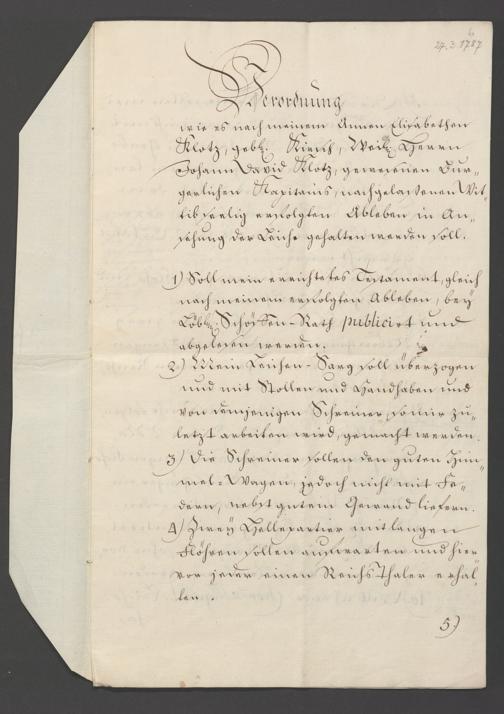 6
27.3.1787
Verordnung
wie es nach meinem Annen Elisabethen
Klotz, gebh. Kirsch, Weil. Herrn
Johann David Klotz, gewesenen Bur=
gerlichen Kapitains, nachgelassenen Wit=
tib seelig erfolgten Ableben in An=
sehung der Leiche gehalten werden soll.
1) Soll mein errichtetes Testament, gleich
nach meinem erfolgten Ableben, bey
Löbl. Schöffen-Rath publicirt und
abgelesen werden.
2) Mein Leichen-Sarg soll überzogen
und mit Stollen und Handhaben und
von demjenigen Schreiner, so mir zu=
letzt arbeiten wird, gemacht werden.
3) Die Schreiner sollen den guten Him=
mel-Wagen, jedoch nicht mit Fe=
dern, nebst gutem Gewand liefern.
4) Zwey Hellepartier mit langen
Flöhren sollen aufwarten und hier=
vor jeder einen Reichs Thaler erhal=
ten.
5)